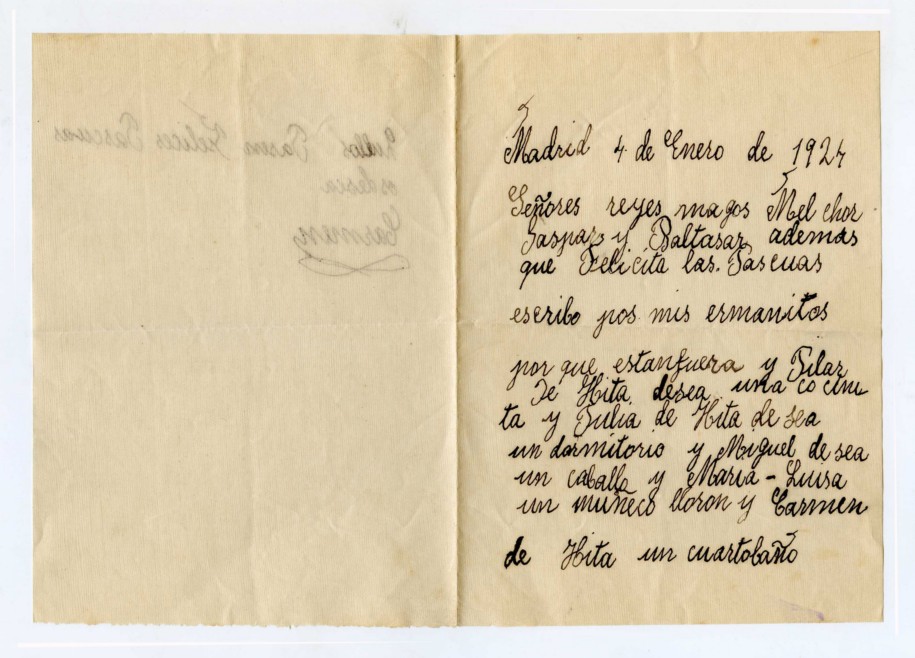 Madrid 4 de Enero de 1927
Señores reyes magos Melchor
Gaspar y Baltasar además
que Felicita las. Pascuas
escribo pos mis ermanitos
por que estanfuera y Pilar
De Hita desea una cocini
ta y Julia de Hita de sea
un dormitorio y Miguel de sea
un caballo y María-Luisa
un muñeco lloron y Carmen
de Hita un cuartobaño
Pasen Felices Pascuas
osdesea
Carmen